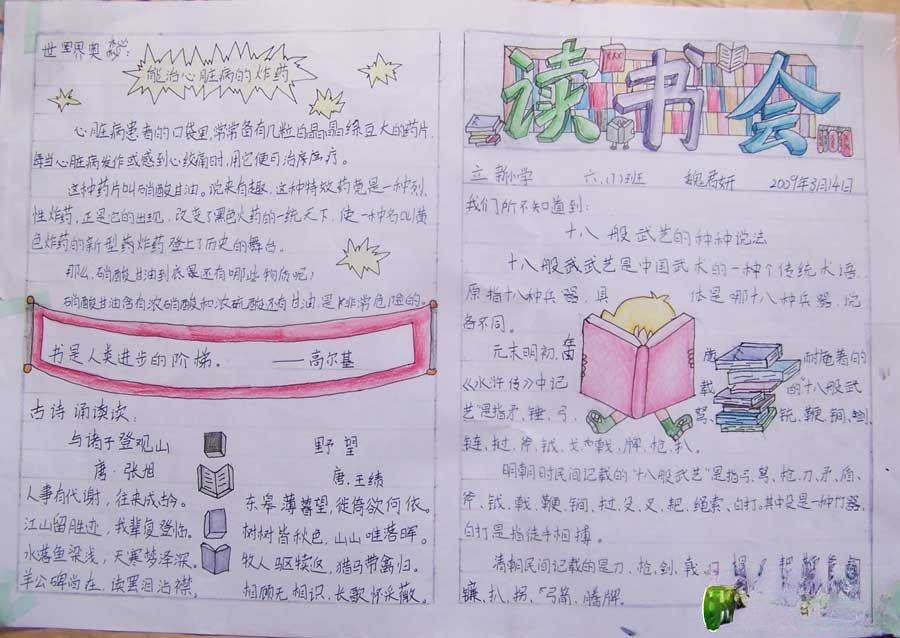 世界奥秘:
能治心脏病的炸药
心脏病患者的口袋里,常常备有几粒白晶晶绿豆大的药片,
每当心脏病发作或感到心绞痛时,用它便可治疗医疗。
这种药片叫硝酸甘油。说来有趣,这种特效药竟是一种烈
性炸药,正是它的出现,改变了黑色火药的一统天下,使一种名叫黄
色炸药的新型药炸药登上了历史的舞台。
那么,硝酸甘油到底是还有哪些物质呢?
硝酸甘油含有浓硝酸和浓硫酸还有甘油,是非常危险的。
书是人类进步的阶梯。 ——高尔基
古诗诵读读:
与诸子登观山
唐·张旭
人事有代谢,往来成古今。
江山留胜迹,我辈复登临。
水落鱼梁浅,天寒梦泽深。
羊公碑尚在,读罢泪沾襟。
野望
唐·王绩
东皋薄暮望,徙倚欲何依。
树树皆秋色,山山唯落晖。
牧人驱犊返,猎马带禽归。
相顾无相识,长歌怀采薇。
读书会
立新小学 六、(1)班 2009年3月14日
我们所不知道到:
十八般武艺的种种说法
十八般武武艺是中国武术的一种个传统术语,
原指十八种兵器,具体是哪十八种兵器,说
各不同。
元末明初,施耐庵著的
《水浒传》中记载的"十八般武
艺"是指矛、锤、弓、弩、铳、鞭、锏、剑、
链、挝、斧、钺、戈、戟、牌、枪、扒。
明朝时民间记载的"十八般武艺"是指弓、弩、枪、刀、矛、盾、
斧、钺、戟、鞭、锏、挝、殳、叉、耙、绳索、白打,其中殳是一种打器,
白打是指徒手相搏。
清朝民间记载的是刀、枪、剑、戟
镰、扒、拐、弓箭、藤牌。